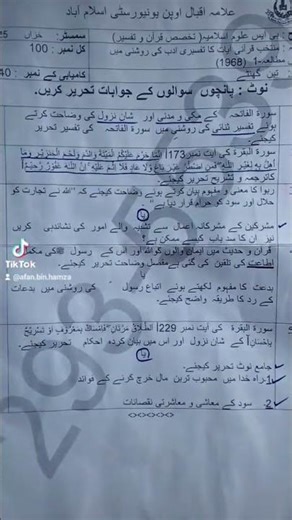 علامہ اقبال اوپن یونیورسٹی اسلام آباد
بی ایس علوم اسلامیہ( تخصص قرآن و تفسیر) سمسٹر: خزاں 25
: منتخب قرآنی آیات کا تفسیری ادب کی روشنی میں کل نمبر : 100
مطالعہ-1 (1968)
تین گھنٹے کامیابی کے نمبر : 40
نوٹ : پانچوں سوالوں کے جوابات تحریر کریں۔
سورۃ الفاتحہ کے مکی و مدنی اور شان نزول کی وضاحت کرتے
ہوئے تفسیر ثنائی کی روشنی میں سورۃ الفاتحہ کی تفسیر تحریر
سورۃ البقرۃ کی آیت نمبر 173[اِنَّمَا حَرَّمَ عَلَیْکُمُ الْمَیْتَةَ وَالدَّمَ وَلَحْمَ الْخِنْزِیْرِ وَمَا
اُهِلَّ بِهٖ لِغَیْرِ اللّٰهِ فَمَنِ اضْطُرَّ غَیْرَ بَاغٍ وَّلَا عَادٍ فَلَا اِثْمَ عَلَیْهِ اِنَّ اللّٰهَ غَفُوْرٌ رَّحِیْمٌ]
کاترجمہ و تشریح تحریر کیجئے۔
ربوا کا معنی و مفہوم بیان کرتے ہوئے وضاحت کیجئے کہ "اللہ نے تجارت کو
حلال اور سود کو حرام قرار دیا ہے"۔
یا
مشرکین کے مشرکانہ اعمال سے تشبیہ والے امور کی نشاندہی کریں
نیز ان کا سد باب کیسے ممکن ہے؟
قرآن و حدیث میں ایمان والوں کو اللہ اور اس کے رسول ﷺ کی مکمل
اطاعت کی تلقین کی گئی ہے مفصل وضاحت تحریر کیجئے۔
یا
بدعت کا مفہوم لکھتے ہوئے اتباع رسول کی روشنی میں بدعات
کے رد کا طریقہ واضح کیجئے۔
سورۃ البقرۃ کی آیت نمبر 229[اَلطَّلَاقُ مَرَّتَانِ فَاِمْسَاكٌ بِمَعْرُوْفٍ اَوْ تَسْرِیْحٌ
بِاِحْسَانٍ] کے شان نزول اور اس میں بیان کردہ احکام تحریر کیجئے۔
یا
جامع نوٹ تحریر کیجئے۔
1۔راہ خدا میں محبوب ترین مال خرچ کرنے کے فوائد
2۔ سود کے معاشی و معاشرتی نقصانات
TikTok
@afan.bin.hamza